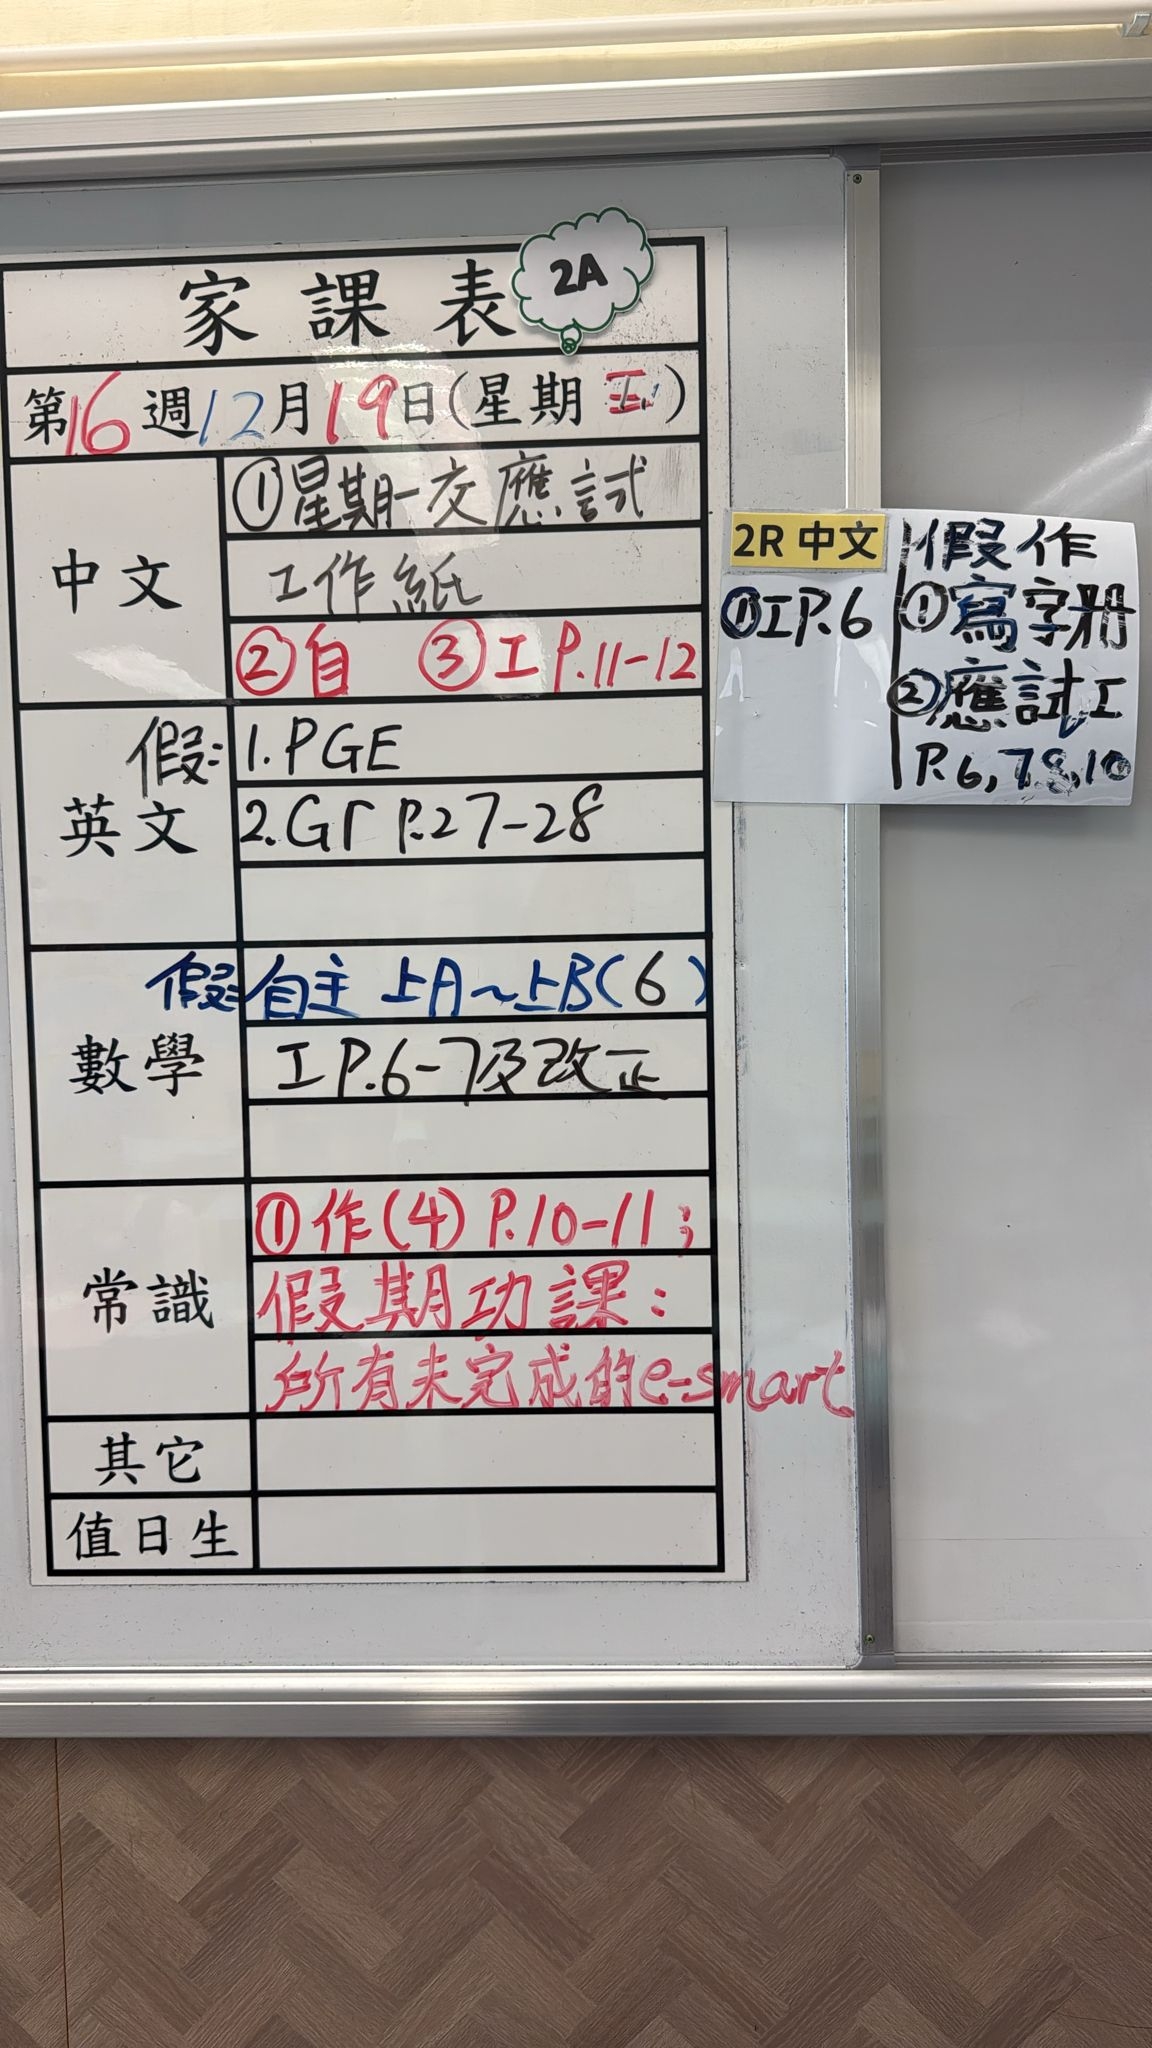 家課表
2A
第16週12月19日(星期五)
中文
①星期一交應試
工作紙
②自 ③工P.11-12
英文
假:
1.PGE
2.Gr P.27-28
數學
假:
自主 上A~上B(6)
工P.6-7及改正
常識
①作(4) P.10-11;
假期功課:
所有未完成的e-smart
其它
值日生
2R 中文
①工P.6
假作
①寫字册
②應試工
P.6,7,8,10